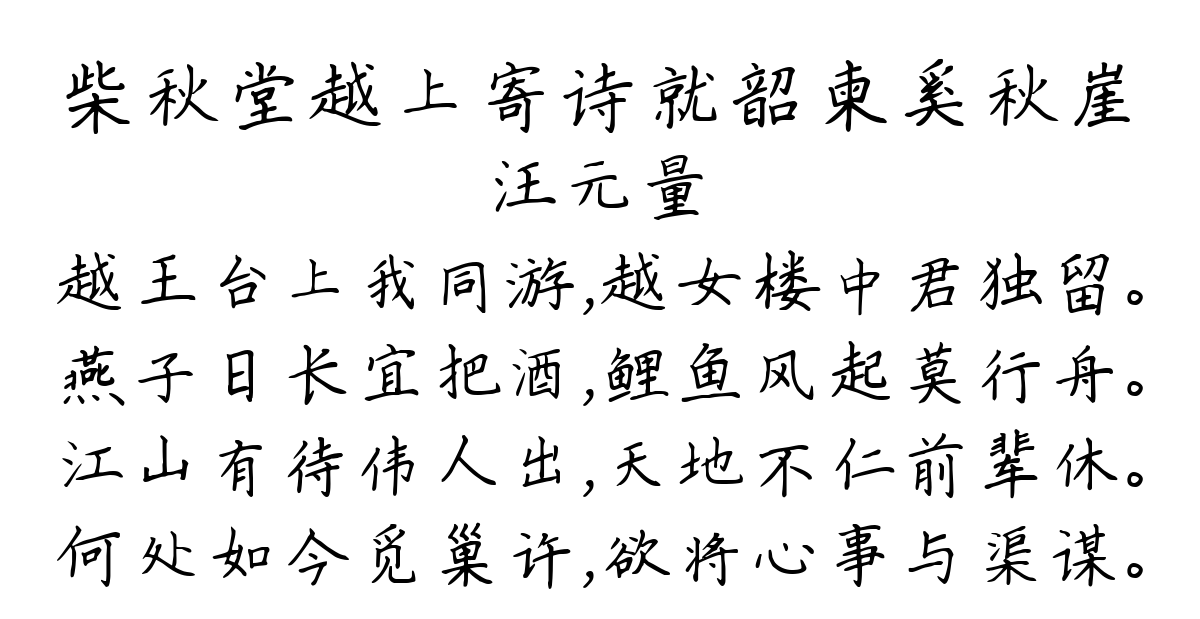 柴秋堂越上寄诗就韶柬奚秋崖
汪元量
越王台上我同游,越女楼中君独留。
燕子日长宜把酒,鲤鱼风起莫行舟。
江山有待伟人出,天地不仁前辈休。
何处如今觅巢许,欲将心事与渠谋。